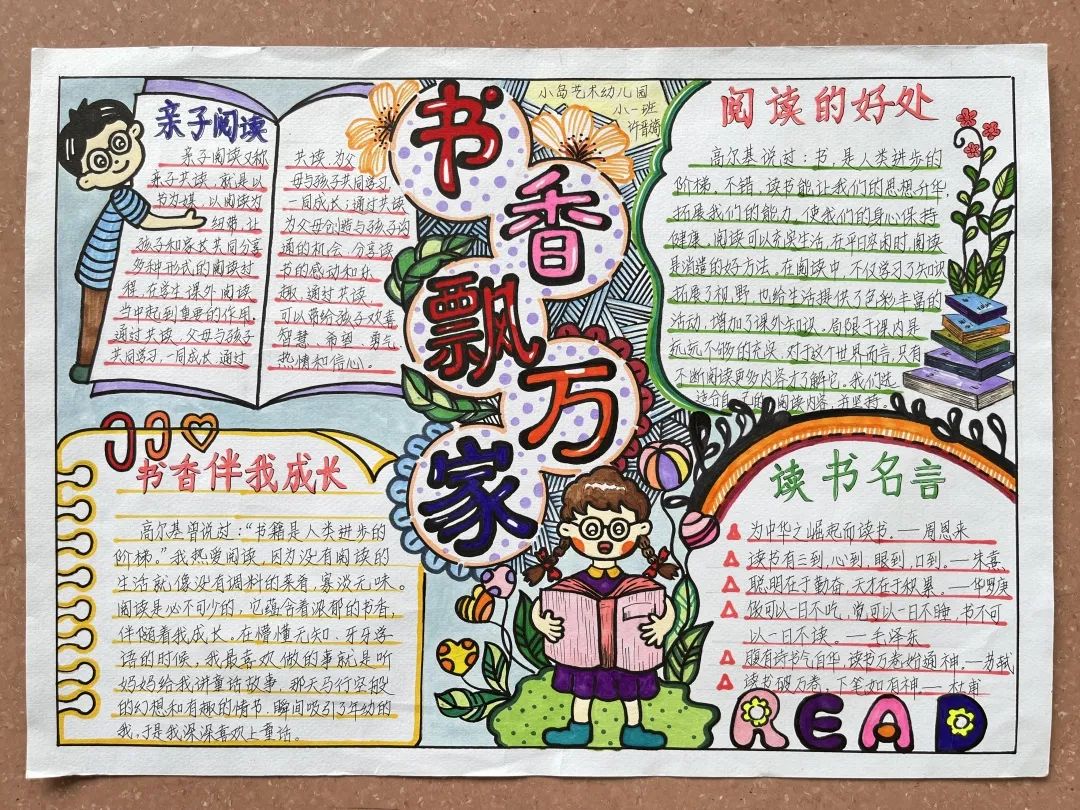 书香飘万家
小岛艺术幼儿园
小一班
亲子阅读
亲子阅读又称
亲子共读，就是以
书为媒，以阅读为
纽带，让
孩子和家长共同分享
多种形式的阅读过
程，在学生课外阅读
当中起到重要的作用。
通过共读，父母与孩子
共同学习，一同成长；通过
共读，为父
母与孩子共同学习，
一同成长；通过共读
为父母创造与孩子沟
通的机会，分享读
书的感动和乐
趣，通过共读，
可以带给孩子欢喜
智慧、希望、勇气，
热情和信心。
阅读的好处
高尔基说过：书，是人类进步的
阶梯。不错，读书能让我们的思想升华，
拓展我们的能力，使我们的身心保持
健康。阅读可以充实生活，在平日空闲时，阅读
是消遣的好方法，在阅读中，不仅学习了知识
拓展了视野，也给生活提供了色彩丰富的
活动，增加了课外知识。局限于课内是
远远不够的充实，对于这个世界而言，只有
不断阅读更多内容才了解它。我们选
适合自己的阅读内容，并坚持。
书香伴我成长
高尔基曾说过：“书籍是人类进步的
阶梯。”我热爱阅读，因为没有阅读的
生活就像没有调料的菜肴，寡淡无味。
阅读是必不可少的，它蕴含着浓郁的书香，
伴随着我成长。在懵懂无知、牙牙学
语的时候，我最喜欢做的事就是听
妈妈给我讲童话故事，那天马行空般
的幻想和有趣的情节，瞬间吸引了年幼的
我，于是我深深喜欢上童话。
读书名言
为中华之崛起而读书。——周恩来
读书有三到，心到，眼到，口到。——朱熹
聪明在于勤奋，天才在于积累。——华罗庚
饭可以一日不吃，觉可以一日不睡，书不可
以一日不读。——毛泽东
腹有诗书气自华，读书万卷始通神。——苏轼
读书破万卷，下笔如有神。——杜甫
READ